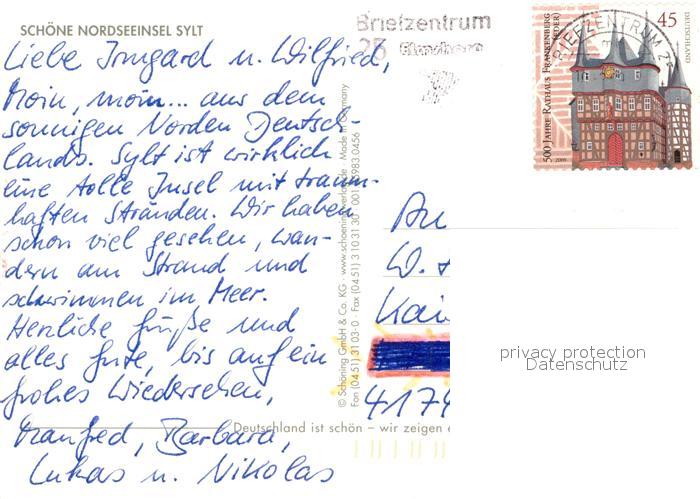 SCHÖNE NORDSEEINSEL SYLT
Liebe Irmgard u. Wilfried,
Moin, moin... aus dem
sonnigen Norden Deutsch-
lands. Sylt ist wirklich
eine tolle Insel mit traum-
haften Stränden. Wir haben
schon viel gesehen, wan-
dern am Strand und
schwimmen im Meer.
Herzliche Grüße und
alles Gute, bis auf ein
frohes Wiedersehen,
Manfred, Barbara,
Lukas u. Nikolas
© Schöning GmbH & Co. KG · www.schoening-verlag.de · Made in Germany
Fon (04 51) 31 03-0 · Fax (04 51) 3 10 31 30
Deutschland ist schön – wir zeigen
Briefzentrum
25
An
W.
Kai
4174
500 JAHRE RATHAUS FRANKENBERG
(EDER)
45
DEUTSCHLAND
BRIEFZENTRUM 25
privacy protection
Datenschutz